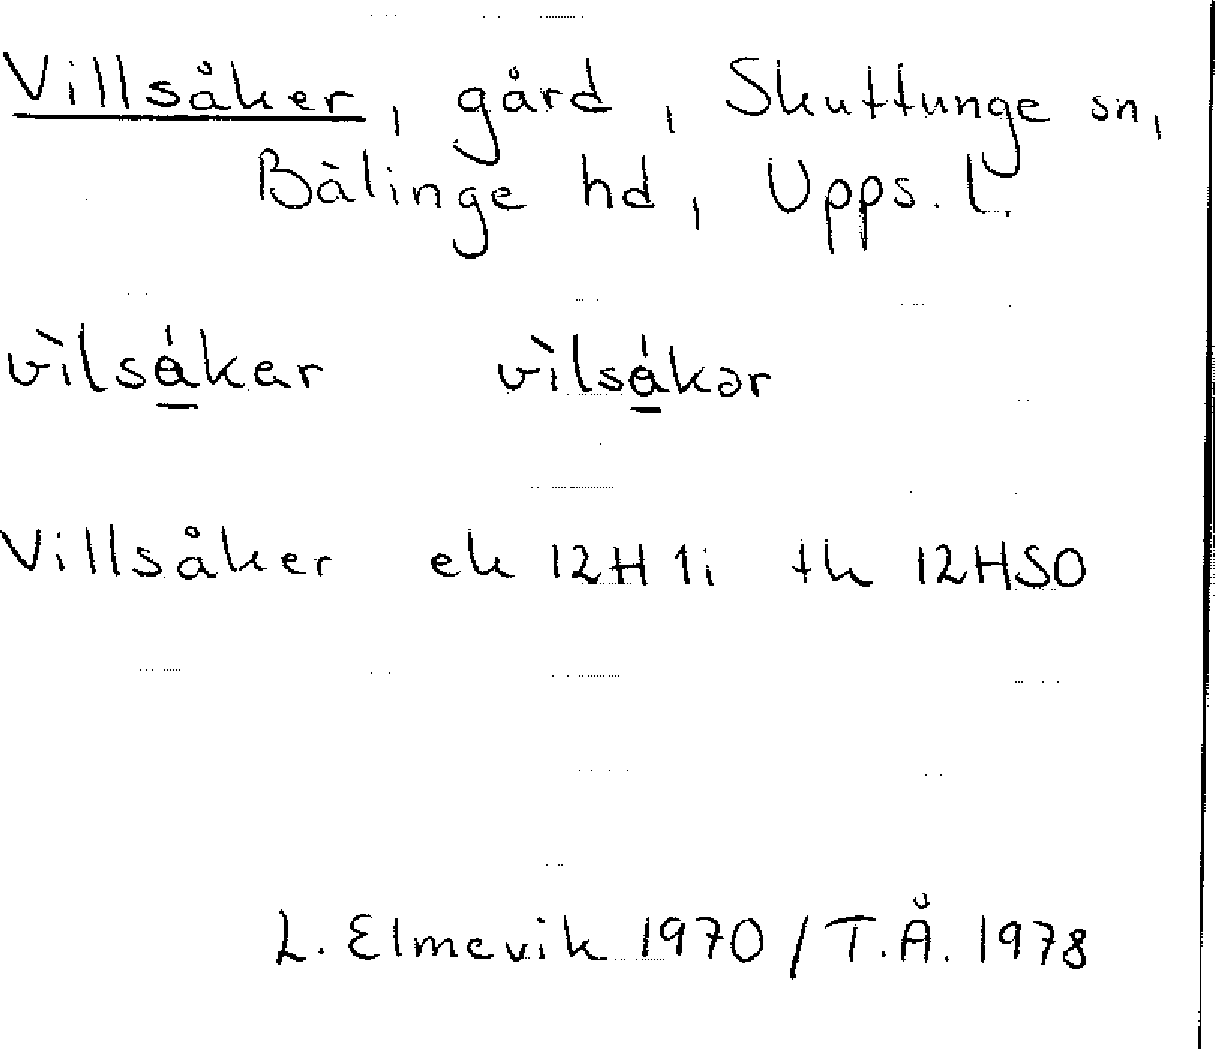 Villsåker, gård, Skuttunge sn,
Bälinge hd, Upps. l.
vìlsá̱kar vìlsá̱kər
Villsåker ek 12H1i tk 12HSO
L. Elmevik 1970 / T.Å. 1978